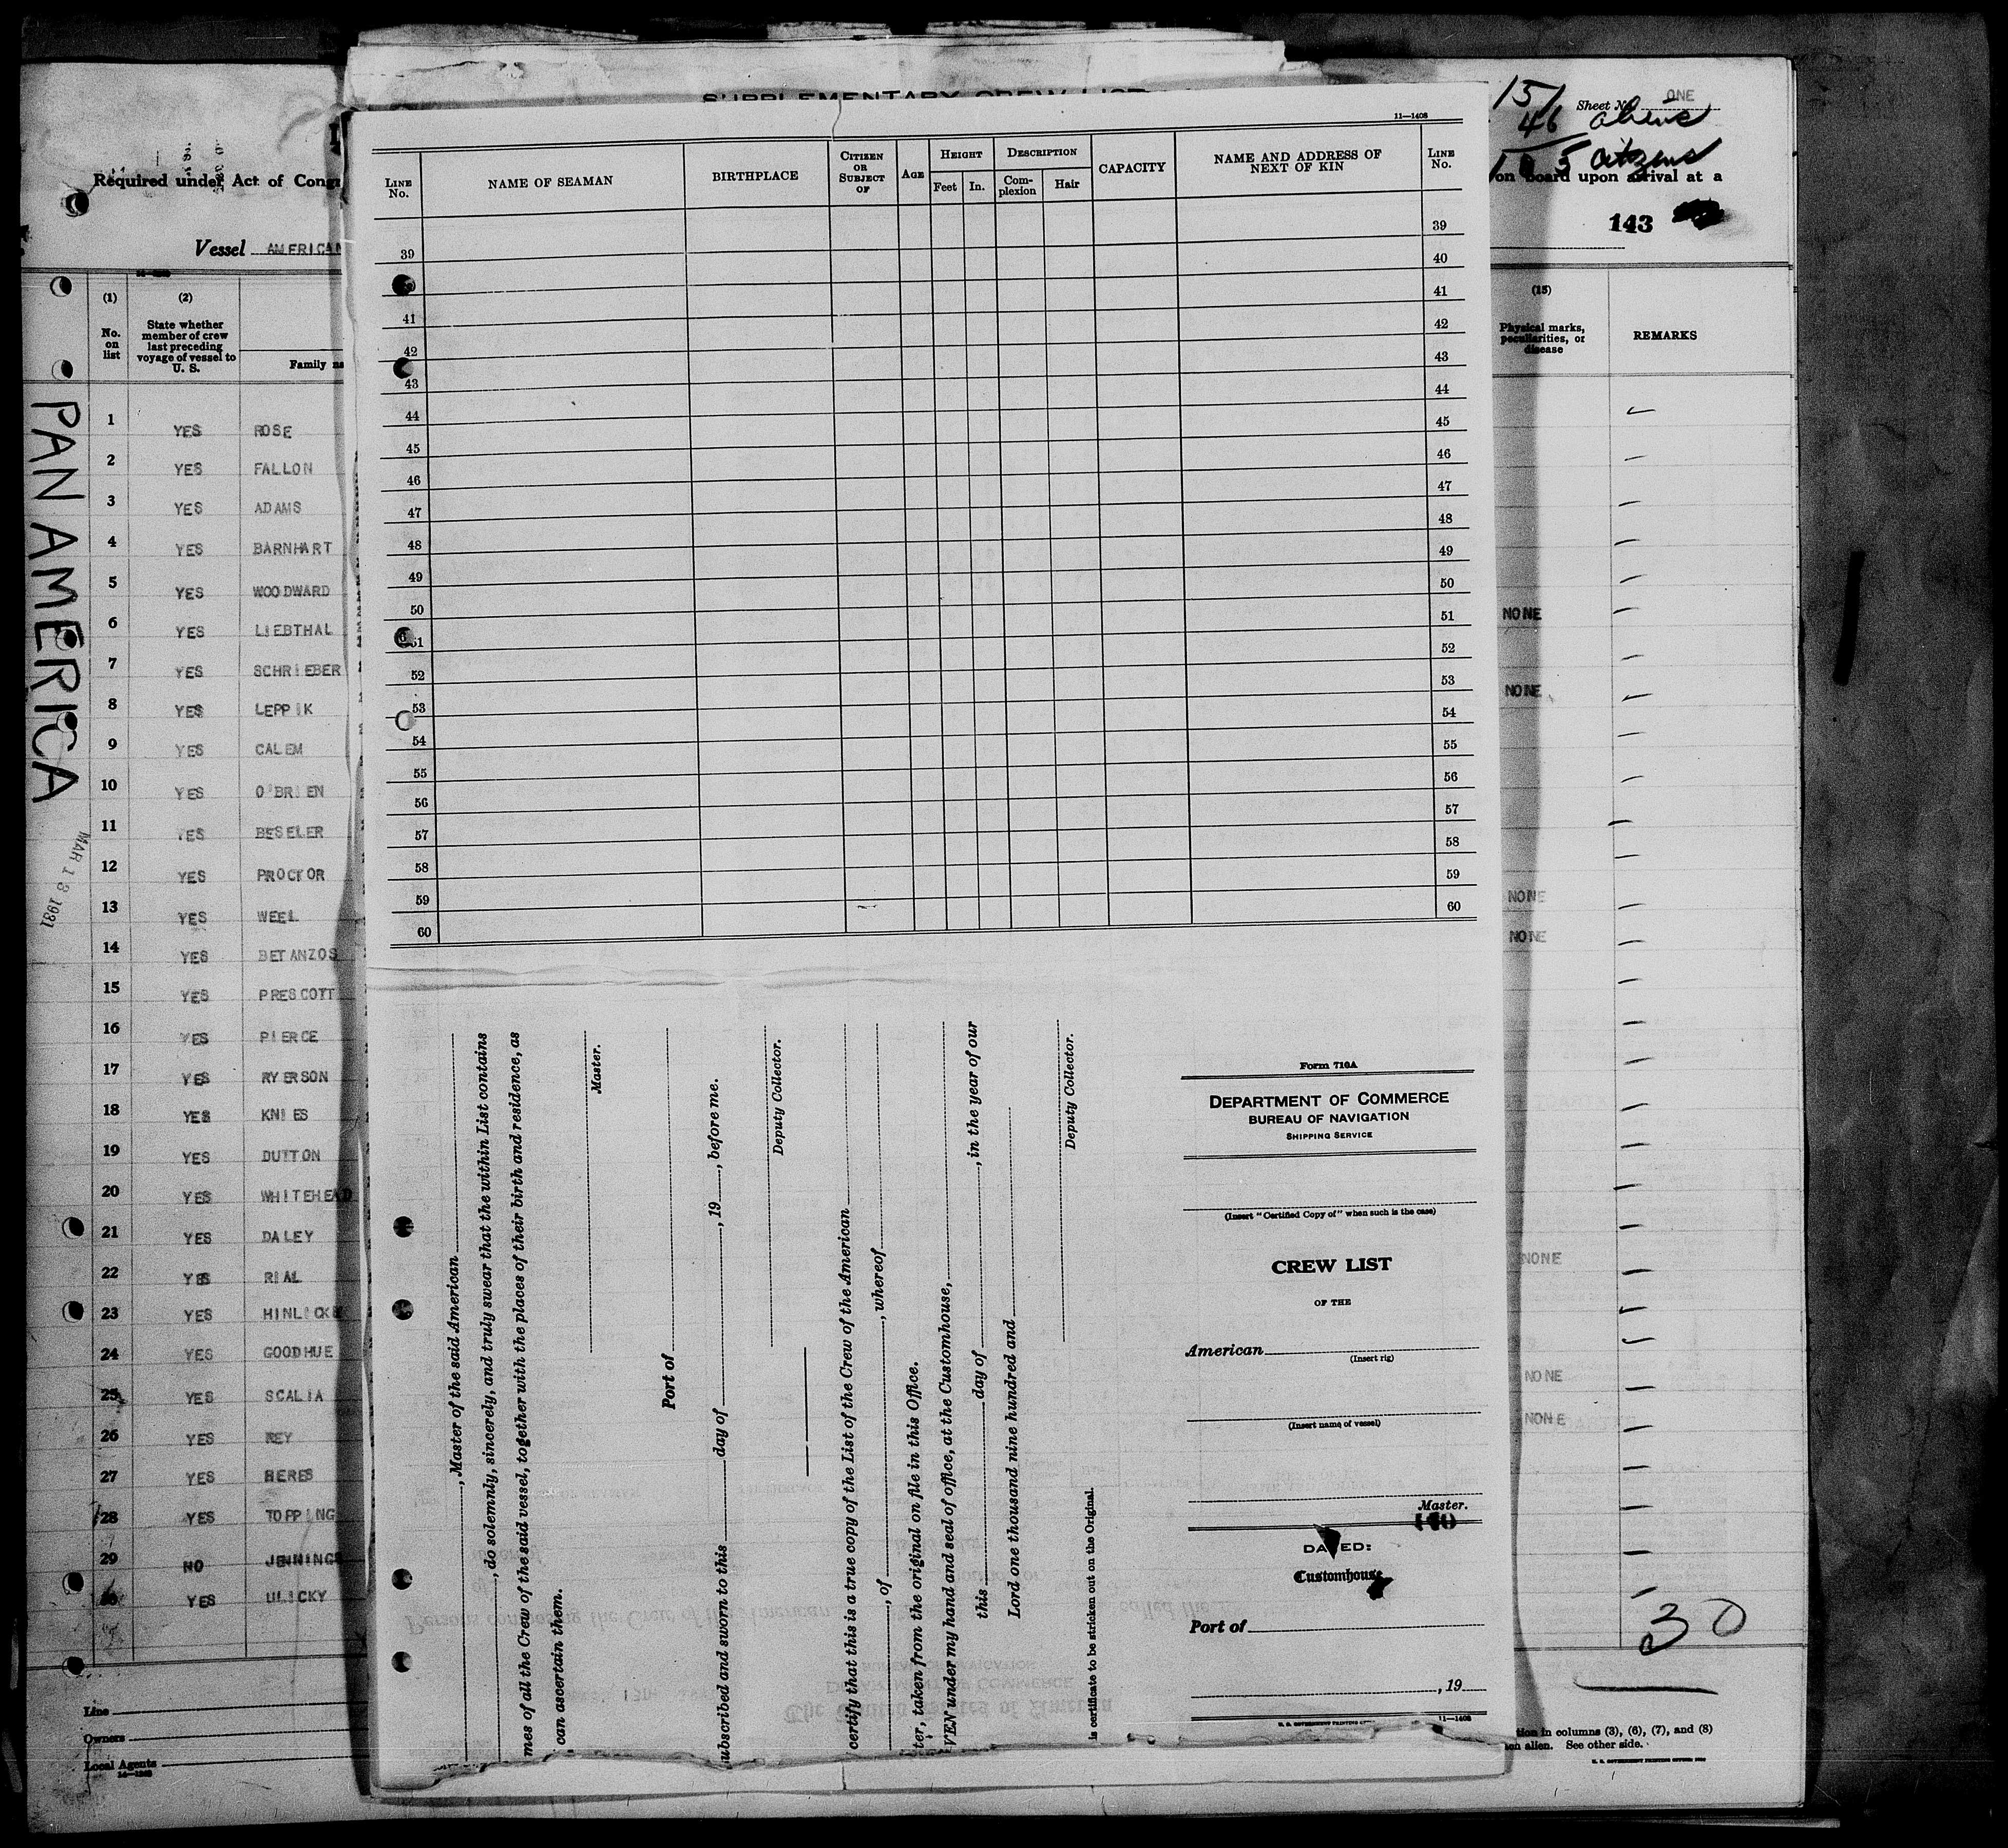 SUPPLEMENTARY CREW LIST
151
46 aliens
105 citizens
Sheet No. ONE
Required under Act of Cong
on board upon arrival at a
143
Vessel AMERICAN
(1)
No. on list
(2)
State whether member of crew last preceding voyage of vessel to U. S.
Family na
(15)
Physical marks, peculiarities, or disease
REMARKS
PAN AMERICA
MAR 13 1931
1 YES ROSE
2 YES FALLON
3 YES ADAMS
4 YES BARNHART
5 YES WOODWARD
6 YES LIEBTHAL NONE
7 YES SCHRIEBER
8 YES LEPPIK NONE
9 YES CALEM
10 YES O'BRIEN
11 YES BESELER
12 YES PROCTOR
13 YES WEEL NONE
14 YES BETANZOS NONE
15 YES PRESCOTT
16 YES PIERCE
17 YES RYERSON
18 YES KNIES
19 YES DUTTON
20 YES WHITEHEAD
21 YES DALEY
22 YES RIAL NONE
23 YES HINLICK
24 YES GOODHUE
25 YES SCALIA NONE
26 YES REY NONE
27 YES HERES
28 YES TOPPING
29 NO JENNINGS
YES ULICKY
30
Line
Owners
Local Agents
tion in columns (3), (6), (7), and (8)
en alien. See other side.
11—1408
LINE No.
NAME OF SEAMAN
BIRTHPLACE
CITIZEN OR SUBJECT OF
AGE
HEIGHT
Feet
In.
DESCRIPTION
Complexion
Hair
CAPACITY
NAME AND ADDRESS OF NEXT OF KIN
LINE No.
39 39
40
41 41
42 42
43 43
44 44
45 45
46 46
47 47
48 48
49 49
50 50
51 51
52 52
53 53
54 54
55 55
56 56
57 57
58 58
59 59
60 60
, Master of the said American
, do solemnly, sincerely, and truly swear that the within List contains
mes of all the Crew of the said vessel, together with the places of their birth and residence, as
can ascertain them.
Master.
Port of
ubscribed and sworn to this day of , 19 , before me.
Deputy Collector.
certify that this is a true copy of the List of the Crew of the American
, of , whereof
ter, taken from the original on file in this Office.
VEN under my hand and seal of office, at the Customhouse,
this day of , in the year of our
Lord one thousand nine hundred and
Deputy Collector.
is certificate to be stricken out on the Original.
Form 710A
DEPARTMENT OF COMMERCE
BUREAU OF NAVIGATION
SHIPPING SERVICE
(Insert "Certified Copy of" when such is the case)
CREW LIST
OF THE
American
(Insert rig)
(Insert name of vessel)
Master.
DATED:
Customhouse
Port of
, 19
11—1408